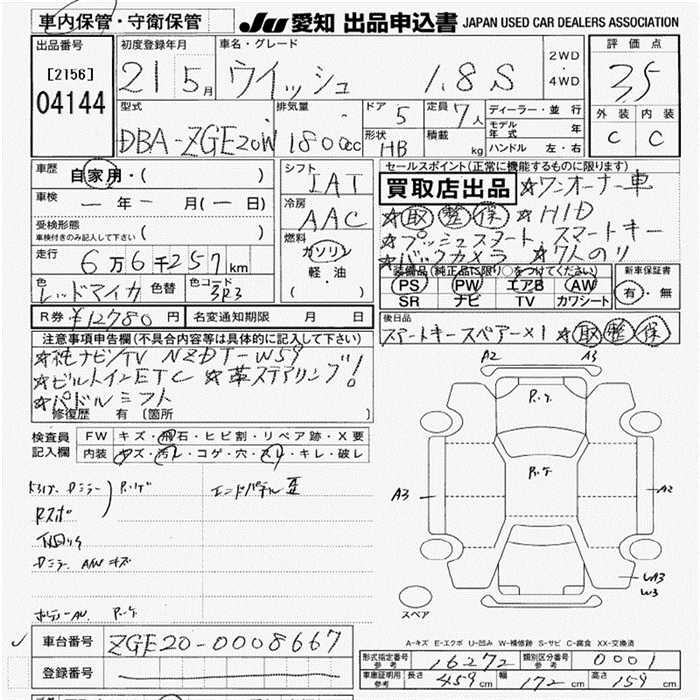 車内保管・守衛保管
JU 愛知 出品申込書 JAPAN USED CAR DEALERS ASSOCIATION
出品番号
[2156]
04144
初度登録年月
21 5月
車名・グレード
ウイッシュ 1.8S
2WD
・
4WD
評価点
3.5
外装 内装
C C
型式
DBA-ZGE20W
排気量
1800cc
ドア 5
形状 HB
定員 7人
積載 kg
ディーラー・並行
モデル年式 年
ハンドル 左・右
車歴
自家用・( )
車検
ー年ー月(ー日)
受検形態
車検付きのみ記入して下さい ( )
走行
6万6千257km
色 レッドマイカ 色替 色コード 3R3
R券 ¥12780円 名変通知期限 月 日
シフト
IAT
冷房
AAC
燃料
ガソリン
軽・油
( )
セールスポイント(正常に機能するものに限ります)
買取店出品 ☆ワンオーナー車
☆取整保 ☆HID
☆プッシュスタート、スマートキー
☆バックカメラ ☆7人のり
装備品(純正品に限り○をつけてください)
PS PW エアB AW
SR ナビ TV カワシート
新車保証書
有・無
後日品
スマートキースペアー×1 ☆取整保
注意事項申告欄(不具合内容等は具体的に記入して下さい)
☆純ナビ/TV NZDT-W59
☆ビルトインETC ☆革ステアリング!
☆パドルシフト
修復歴 有 [箇所 ]
検査員記入欄
FW キズ・飛石・ヒビ割・リペア跡・X要
内装 キズ・汚レ・コゲ・穴・スレ・キレ・破レ
Rスポ
エンドパネル
A2 A3
R.ケ
R.ケ
A3
A2
UA3
W3
スペア
A-キズ E-エクボ U-凹み W-補修跡 S-サビ C-腐食 XX-交換済
車台番号 ZGE20-0008667
登録番号
形式指定番号 参考 16272 類別区分番号 参考 0001
車庫証明用 参考 長さ 459cm 幅 172cm 高さ 159cm